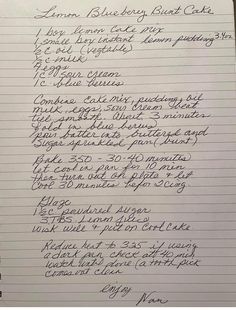 Lemon Blueberry Bunt Cake
1 box lemon cake mix
1 small box instant lemon pudding 3.4oz
½ c oil (vegtable)
½ c milk
4 eggs
1 c sour cream
1 c blue berries
Combine cake mix, pudding, oil
milk, eggs, sour cream beat
till smooth. About 3 minutes
Fold in blue berries
pour batter into buttered and
sugar sprinkled pan (bunt)
Bake 350 - 30-40 minutes
let cool in pan for 10 min
then turn out on plate & let
cool 30 minutes befor icing.
Glaze
1 ½ c powdered sugar
3 TBS. lemon juice
wisk well & put on cool cake
Reduce heat to 325 if using
a dark pan check at 40 min
watch until done (a tooth pick
comes out clean
enjoy
Nan